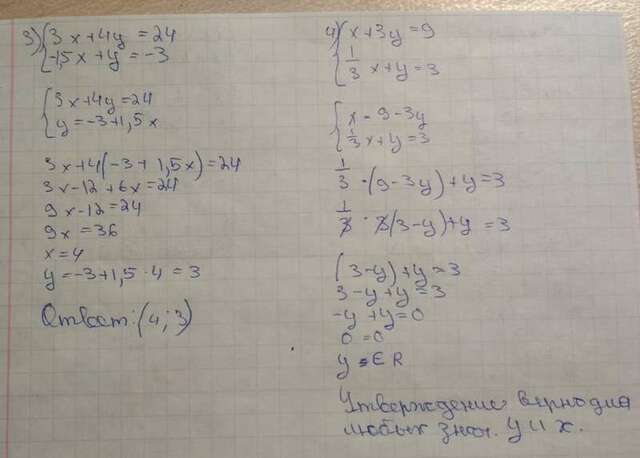 3) { 3x+4y=24
-1,5x+y=-3
{ 3x+4y=24
y=-3+1,5x
3x+4(-3+1,5x)=24
3x-12+6x=24
9x-12=24
9x=36
x=4
y=-3+1,5·4=3
Ответ: (4;3)
4) { x+3y=9
1/3 x+y=3
{ x=9-3y
1/3x+y=3
1/3·(9-3y)+y=3
1/3·3(3-y)+y=3
(3-y)+y=3
3-y+y=3
-y+y=0
0=0
y ∈ R
Утверждение верно для
любых знач. y и x.